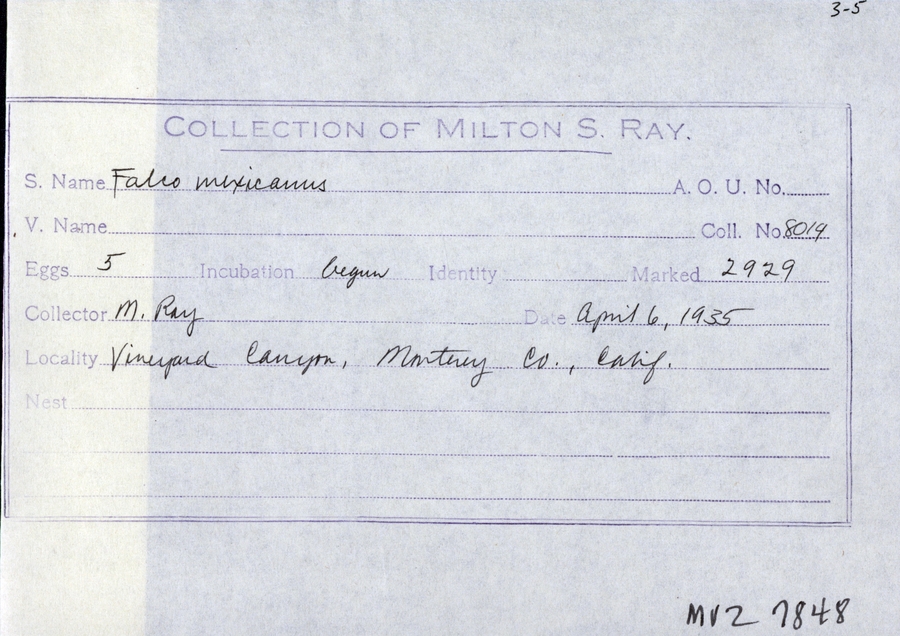 3-5
COLLECTION OF MILTON S. RAY.
S. Name Falco mexicanus A. O. U. No.
V. Name Coll. No. 8019
Eggs 5 Incubation begun Identity Marked 2929
Collector M. Ray Date April 6, 1935
Locality Vineyard Canyon, Monterey Co., Calif.
Nest
MVZ 7848